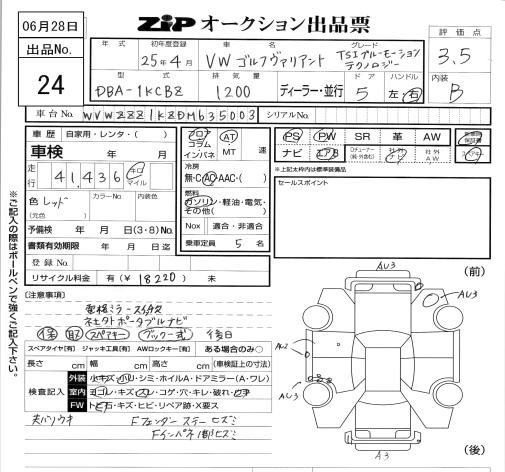 06月28日
ZIP オークション出品票
出品No.
24
年 式
初年度登録
25年4月
車 名
VW ゴルフヴァリアント
グレード
TSIブルーモーション
テクノロジー
評価点
3.5
型 式
DBA-1KCBZ
排 気 量
1200
ディーラー・並行
ド ア
5
ハンドル
左・右
内装
B
車台No.
WVWZZZ1KZDM635003
シリアルNo.
車 歴 自家用・レンタ・( )
車検 年 月
走行 41,436 キロ マイル
色 レッド
(元色 )
カラーNo.
内装色
予備検 年 月 日(3・8)No.
書類有効期限 年 月 日迄
登 録 No.
リサイクル料金 有(¥ 18220 ) 未
フロア
コラム
インパネ
AT
・
MT
速
冷房
無・C・AC・AAC・( )
燃料
ガソリン・軽油・電気・
その他( )
Nox 適合・非適合
乗車定員 5 名
PS PW SR 革 AW
ナビ エアB
社外
ナビ
社外
AW
スペアキー
※上記太枠内は標準装備品
セールスポイント
※ご記入の際はボールペンで強くご記入下さい。
[注意事項]
電格ミラースイッチ欠
ネェクトポータブルナビ
保 取 スペアキー ブック一式 後日
スペアタイヤ[有] ジャッキ工具[有] AWロックキー[有] ある場合のみ○
長さ cm 幅 cm 高さ cm (車検証上の寸法)
検査記入
外装 小キズ・小ソリ・シミ・ホイルA・ドアミラー(A・ワレ)
室内 ヨゴレ・キズ・スレ・コゲ・穴・キレ・破れ・シミ
FW トビ石・キズ・ヒビ・リペア跡・X要ス
Fフェンダーステーヒズミ
Fインパネ1部ヒズミ
(前)
AU3
AU3
AU2
AU3
A3
(後)